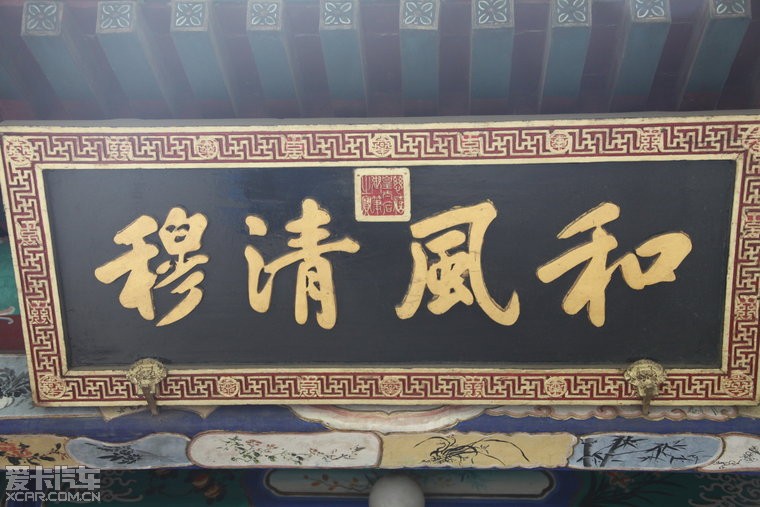 和風清穆
爱卡汽车
XCAR.COM.CN